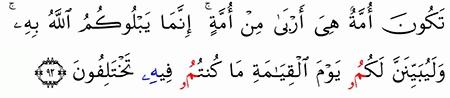 تَكُونَ أُمَّةٌ هِيَ أَرْبَىٰ مِنْ أُمَّةٍ ۚ إِنَّمَا يَبْلُوكُمُ ٱللَّهُ بِهِۦ ۚ
وَلَيُبَيِّنَنَّ لَكُمُۥ يَوْمَ ٱلْقِيَٰمَةِ مَا كُنتُمُۥ فِيهِۦ تَخْتَلِفُونَ ﴿٩٢﴾